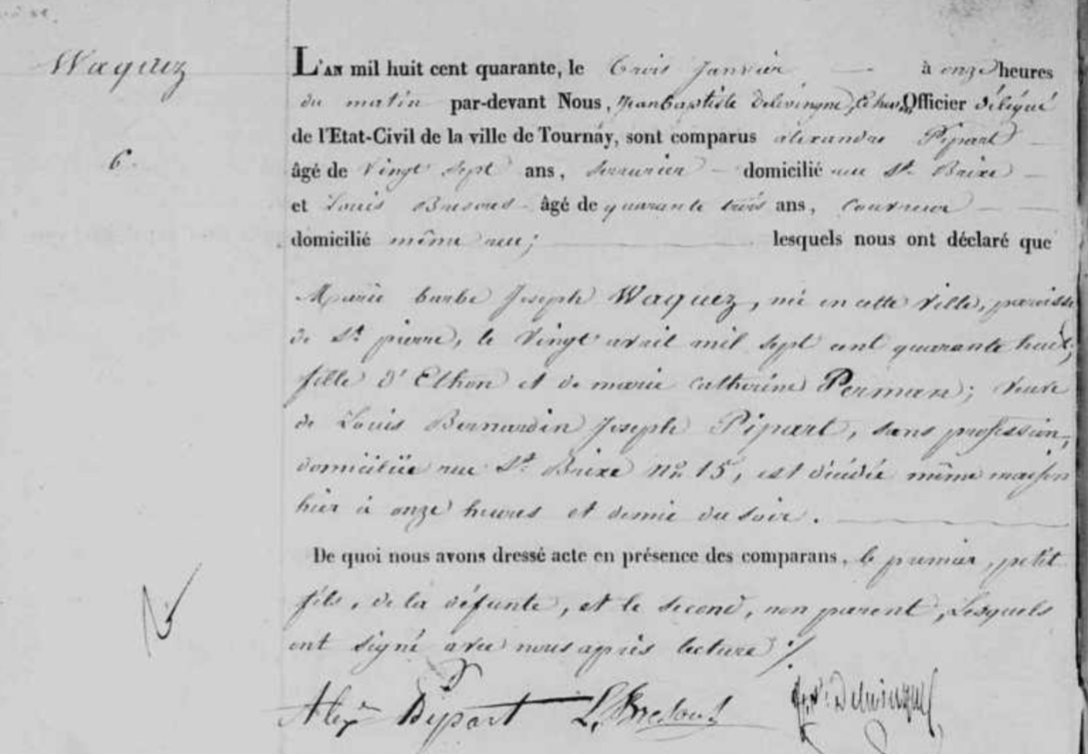 Waquez
6.
L'AN mil huit cent quarante, le trois janvier à onze heures
du matin par-devant Nous, Jean baptiste Delevingne, Echevin, Officier délégué
de l'Etat-Civil de la ville de Tournay, sont comparus alexandre Pipart
âgé de Vingt sept ans, serrurier domicilié rue St Brixe
et Louis Bresous âgé de quarante trois ans, couvreur
domicilié même rue; lesquels nous ont déclaré que
Marie barbe Joseph Waquez, née en cette Ville, paroisse
de St pierre, le Vingt avril mil sept cent quarante huit,
fille d'Ethon et de marie catherine Perman; Veuve
de Louis Bernardin Joseph Pipart, sans profession,
domiciliée rue St Brixe no 15, est décédée même maison
hier à onze heures et demie du soir.
De quoi nous avons dressé acte en présence des comparans, le premier, petit
fils, de la défunte, et le second, non parent, Lesquels
ont signé avec nous après lecture ./
Alex Pipart L. Bresous Delevingne